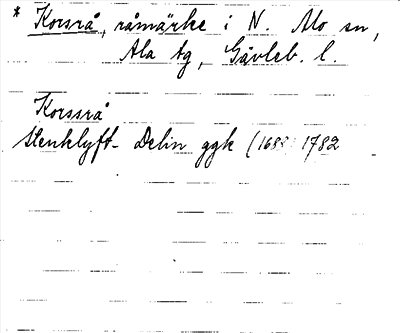 * Korsrå, råmärke i N. Mo sn,
Ala tg, Gävleb. l.
Korsrå
Stenklyft- Delin ggk (1688) 1782